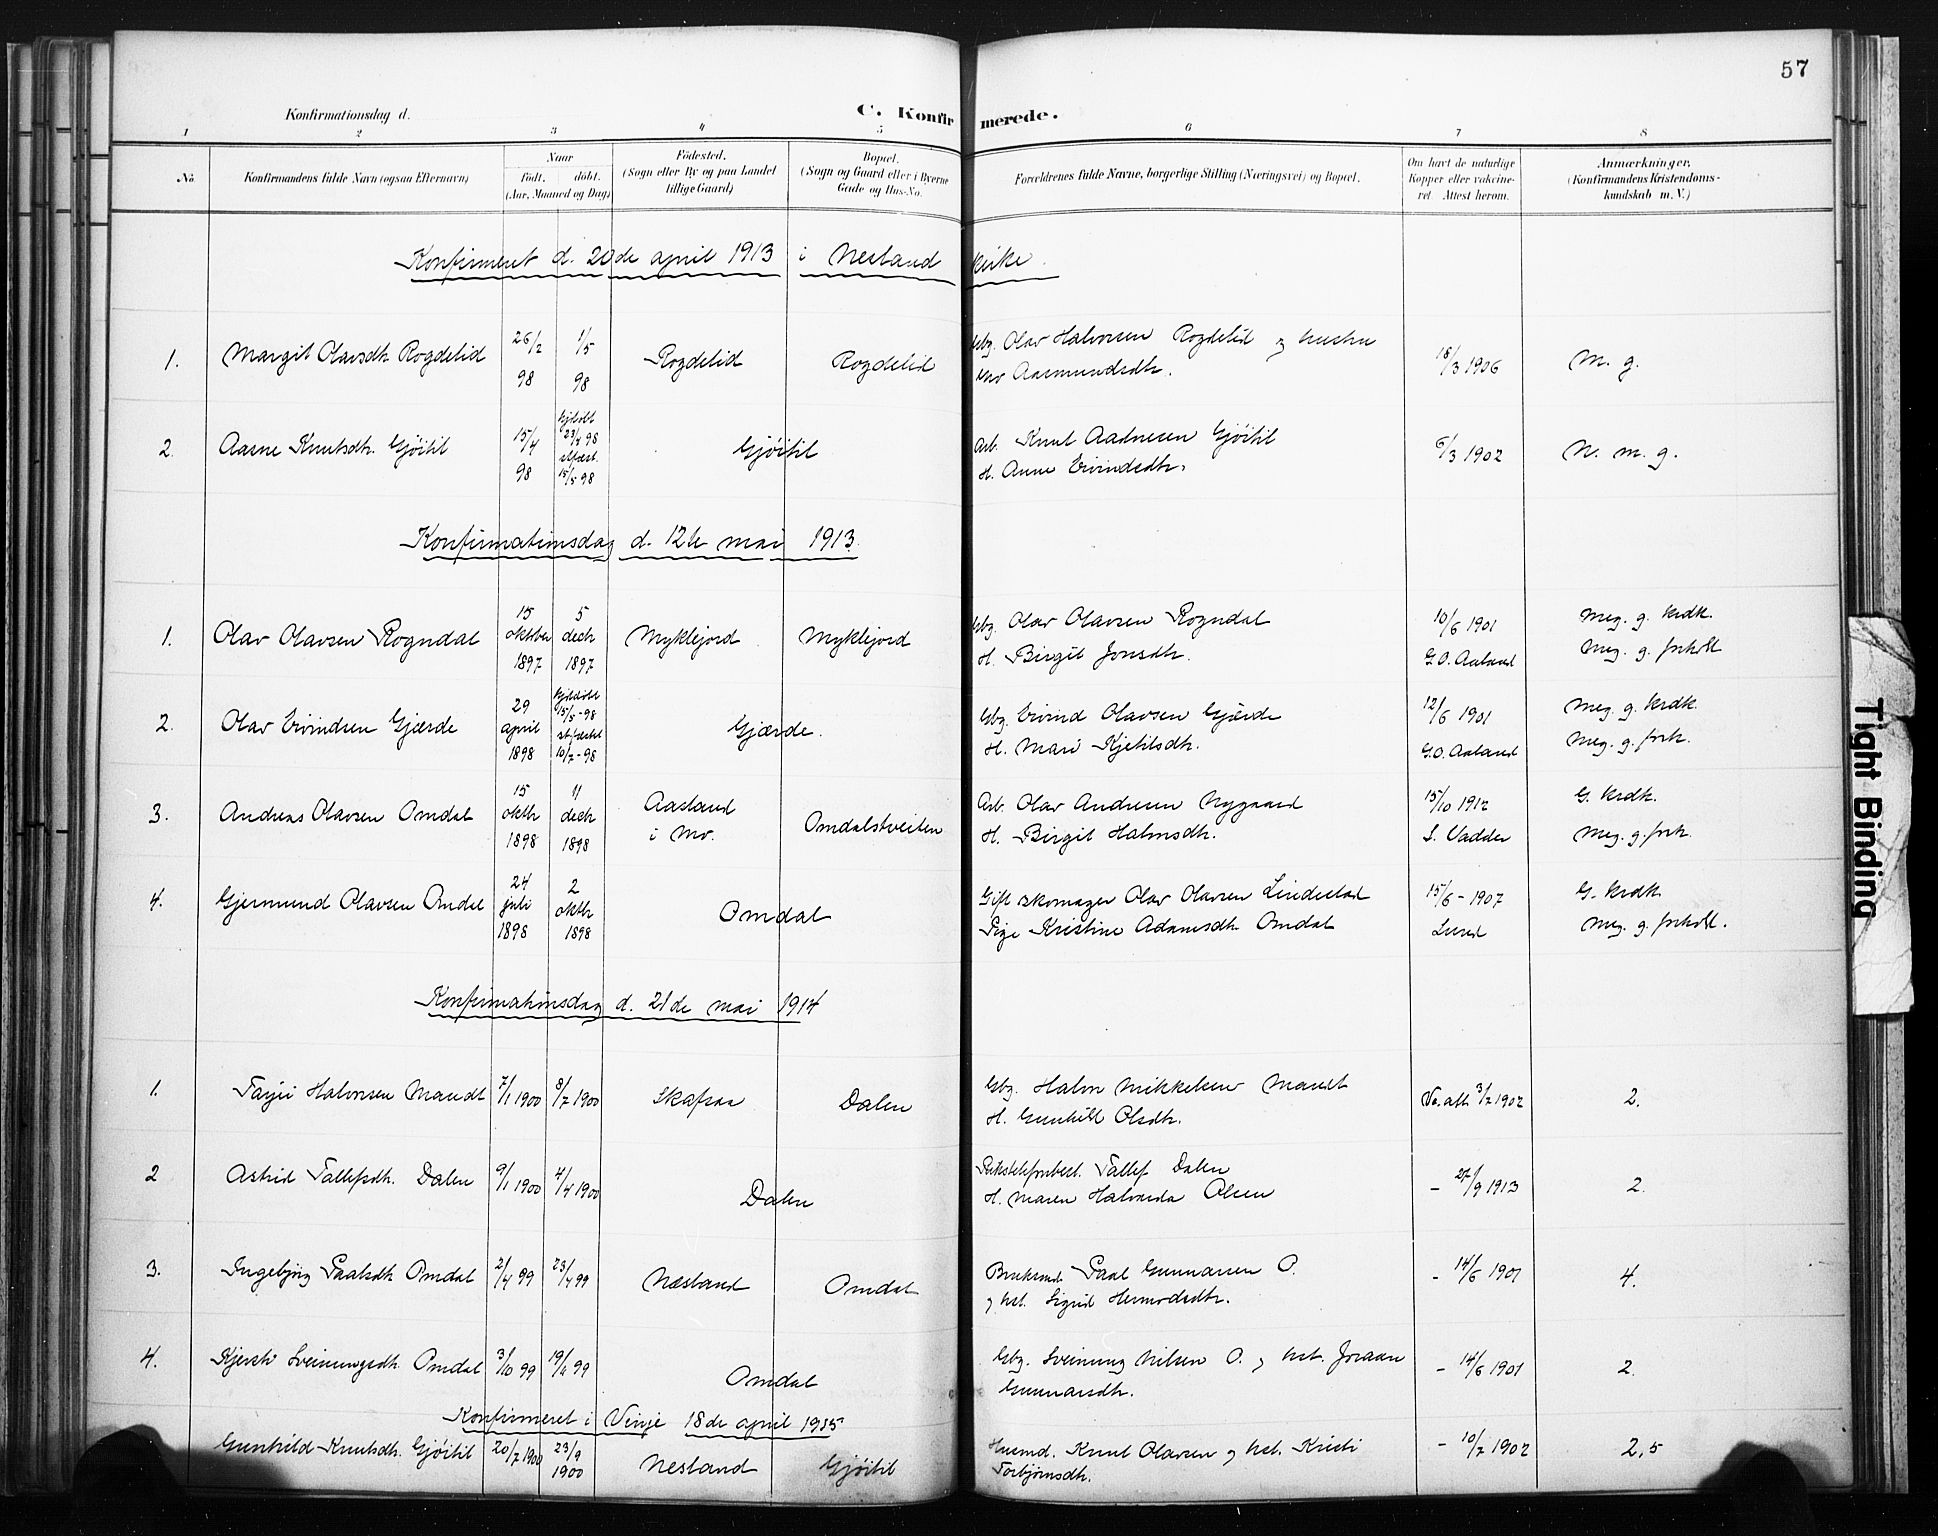 57
Konfirmationsdag d.
C. Konfirmerede.
1 2 3 4 5 6 7 8
No. Konfirmandens fulde Navn (ogsaa Efternavn) Naar Født, døbt. (Aar, Maaned og Dag) Fødested. (Sogn eller By og paa Landet tillige Gaard) Bopæl. (Sogn og Gaard eller i Byerne Gade og Hus-No. Forældrenes fulde Navne, borgerlige Stilling (Næringsvei) og Bopæl. Om havt de naturlige Kopper eller vakcineret. Attest herom. Anmærkninger, (Konfirmandens Kristendomskundskab m. V.)
Konfirmeret d. 20de april 1913 i Nesland kirke.
1. Margit Olavsdtr Rogdelid 26/2 98 1/5 98 Rogdelid Rogdelid Gbg. Olav Halvorsen Rogdelid og hustru
Aasmundsdtr. 18/3 1906 M. g.
2. Aasne Knutsdtr. Gjøitil 15/4 98 hjdøbt 23/4 98 stfæst. 15/5 98 Gjøitil Arb. Knut Aadnesen Gjøitil
H. Anne Eivindsdtr. 6/3 1902 N. m. g.
Konfirmationsdag d. 12te mai 1913.
1. Olav Olavsen Rogndal 15 oktober 1897 5 decbr 1897 Myklejord Myklejord Gbg. Olav Olavsen Rogndal
H. Birgit Jonsdtr. 10/6 1901 G. O. Aaland Meg. g. krdk. Meg. g. forhold
2. Olav Eivindsen Gjærde 29 april 1898 hjdøbt 15/5-98 stfæstet 10/7-98 Gjærde. Gbg. Eivind Olavsen Gjærde
H. Mari Kjetilsdtr. 12/6 1901 G. O. Aaland Meg. g. krdk. Meg. g. forh.
3. Andreas Olavsen Omdal 15 oktbr 1898 11 decbr 1898 Aasland i Mo. Omdalstveiten Arb. Olav Andresen Nygaard
H. Birgit Halvorsdtr. 15/10 1912 S. Vadder G. krdk. Meg. g. forh.
4. Gjermund Olavsen Omdal 24 juli 1898 2 oktbr 1898 Omdal Gift skomager Olav Olavsen Lindestad
Pige Kristine Adamsdtr Omdal 15/6 - 1907 Lund G. krdk Meg. g. forhold.
Konfirmationsdag d. 21de mai 1914
1. Tarjei Halvorsen Mandt 7/1 1900 8/7 1900 Skafsaa Dalen Gbg. Halvor Mikkelsen Mandt
H. Gunhild Olsdtr. Va. att. 3/7 1902 2.
2 Astrid Tallefsdtr. Dalen 9/1 1900 4/4 1900 Dalen Tallef Dalen
H. Maren Halvorda Olsen - 27/9 1913 2.
3. Ingebjørg Paalsdtr Omdal 2/4 99 23/4 99 Næsland Omdal Bruksmd. Paal Gunnarsen O.
og hst. Sigrid Hermodsdtr. - 14/6 1901 4.
4. Kjersti Sveinungsdtr. Omdal 3/10 99 99 Omdal Gbg. Sveinung Nilsen O. og hst. Joraan
Gunnarsdtr. - 14/6 1901 2.
Konfirmeret i Vinje 18de april 1915
Gunhild Knutsdtr. Gjøitil 20/7 1900 23/9 1900 Nesland Gjøitil Husmd. Knut Olavsen og hst. Kristi
Torbjørnsdtr. - 10/7 1902 2,5
Tight Binding